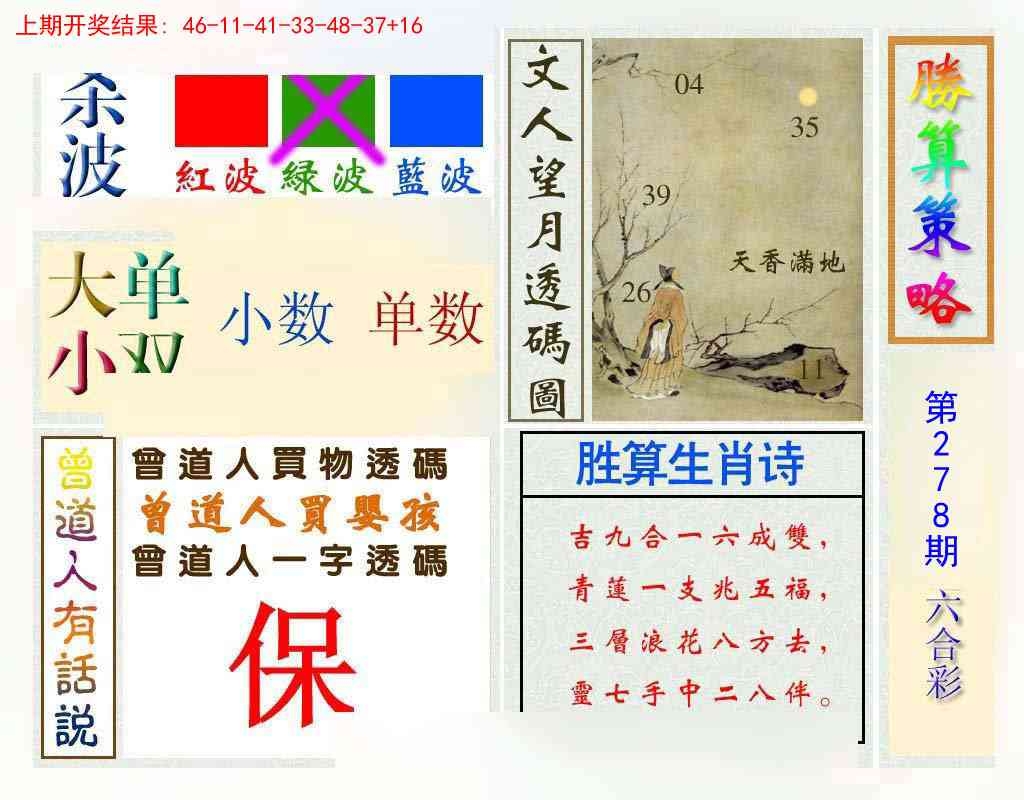 上期开奖结果: 46-11-41-33-48-37+16
杀波
紅波 緑波 藍波
大小
单双
小数 单数
文人望月透碼圖
04
35
39
天香滿地
26
11
勝算策略
第278期
六合彩
曾道人有話説
曾道人買物透碼
曾道人買嬰孩
曾道人一字透碼
保
胜算生肖诗
吉九合一六成雙,
青蓮一支兆五福,
三層浪花八方去,
靈七手中二八伴。